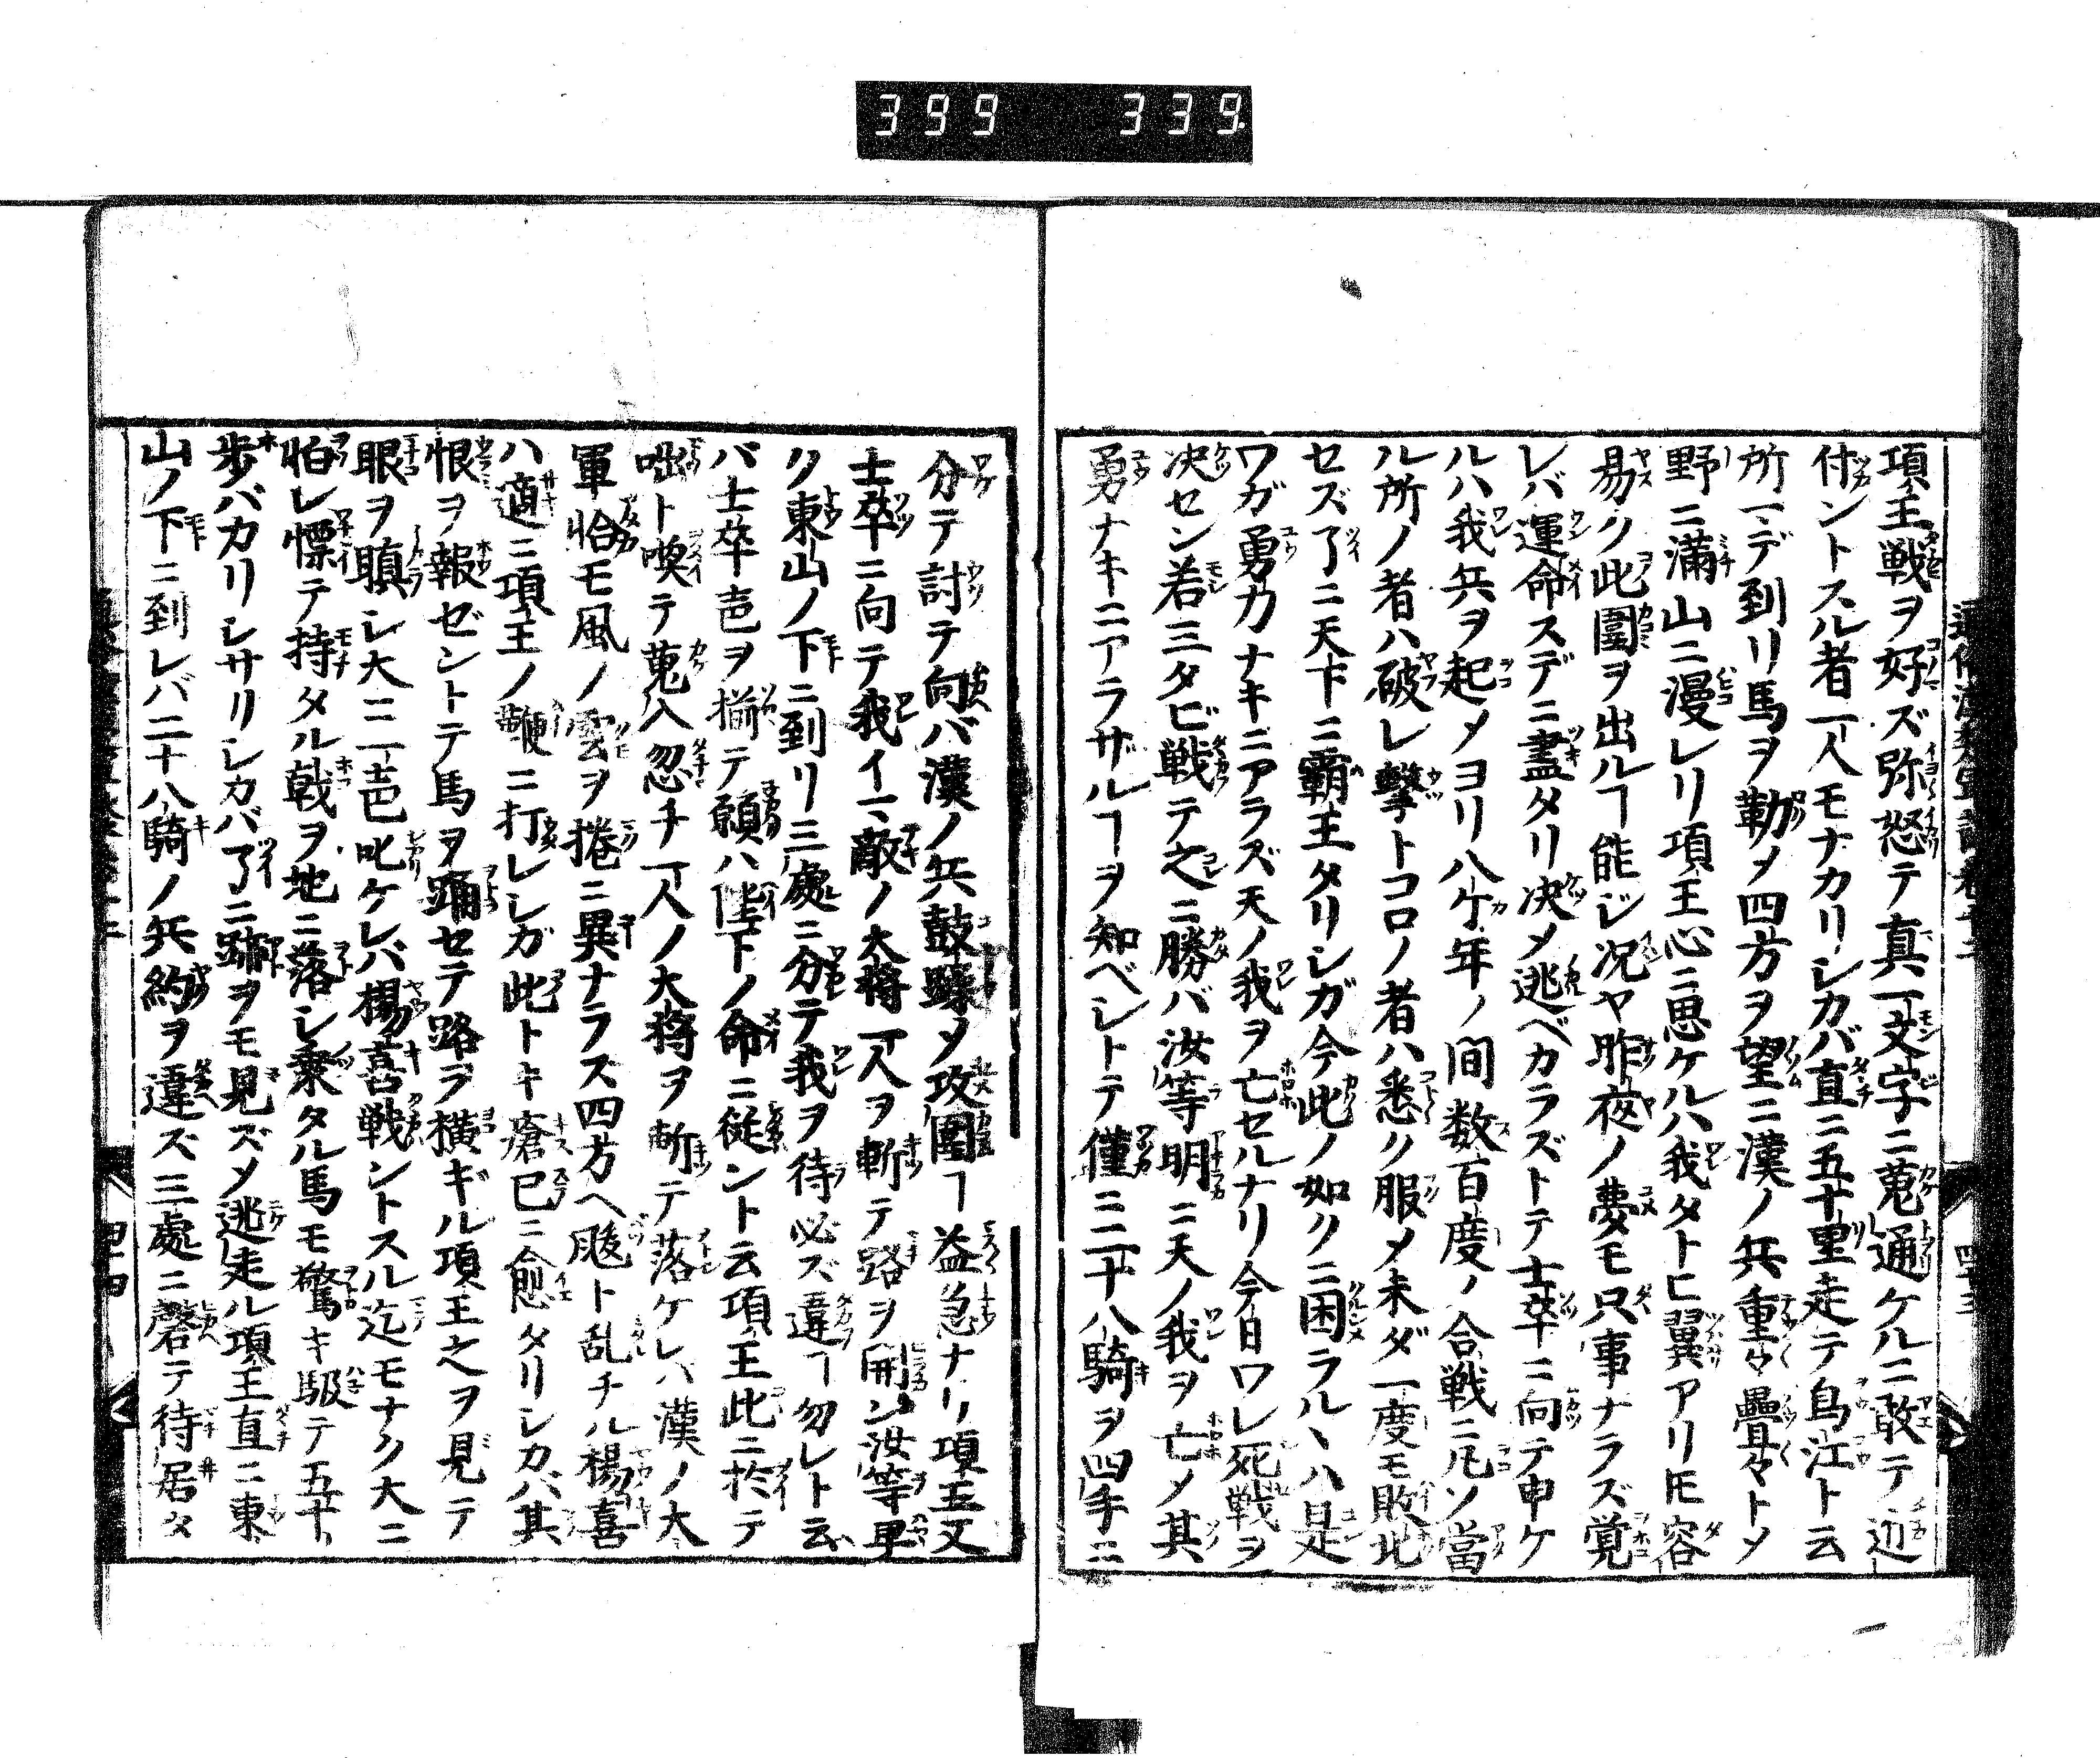 399 339
項王戦ヲ好ズ弥怒テ真一文字ニ蒐通ケルニ敢テ近
付ントスル者一人モナカリシカバ直ニ五十里走テ烏江ト云
所マデ到リ馬ヲ勒メ四方ヲ望ニ漢ノ兵重々疊々トメ
野ニ滿山ニ漫レリ項王心ニ思ケルハ我タトヒ翼アリ𪜈容
易ク此圍ヲ出ルヿ能ジ況ヤ昨夜ノ夢モ只事ナラズ覚
レバ運命スデニ盡タリ决メ逃ベカラズトテ士卒ニ向テ申ケ
ルハ我兵ヲ起メヨリ八ケ年ノ間数百度ノ合戦ニ凡ソ當
ル所ノ者ハ破レ擊トコロノ者ハ悉ク服メ未ダ一度モ敗北
セズ了ニ天下ニ覇王タリシガ今此ノ如クニ困ラルヽハ是
ワガ勇力ナキニアラズ天ノ我ヲ亡セルナリ今日ワレ死戦ヲ
决セン若三タビ戦テ之ニ勝バ汝等明ニ天ノ我ヲ亡メ其
勇ナキニアラザルヿヲ知ベシトテ僅ニ二十八騎ヲ四手ニ
分テ討テ向バ漢ノ兵鼓躁メ攻圍ヿ益急ナリ項王又
士卒ニ向テ我イマ敵ノ大将一人ヲ斬テ路ヲ開ン汝等早
ク東山ノ下ニ到リ三處ニ分テ我ヲ待必ズ違ヿ勿レト云
バ士卒皆ヲ揃テ願ハ陛下ノ命ニ従ント云項王此ニ於テ
咄ト喚テ蒐入忽チ一人ノ大将ヲ斬テ落ケレバ漢ノ大
軍恰モ風ノ雲ヲ捲ニ異ナラス四方ヘ颰ト乱チル楊喜
ハ適ニ項王ノ鞭ニ打レシガ此トキ瘡已ニ愈タリシカバ其
恨ヲ報ゼントテ馬ヲ踊セテ路ヲ横ギル項王之ヲ見テ
眼ヲ瞋シ大ニ一声叱ケレバ楊喜戦ントスル迄モナク大ニ
怕レ慄テ持タル戟ヲ地ニ落シ乗タル馬モ驚キ馺テ五十
歩バカリシサリシカバ了ニ跡ヲモ見ズメ逃走ル項王直ニ東
山ノ下ニ到レバ二十八騎ノ兵約ヲ違ズ三處ニ磬テ待居タ
四十三
四十四